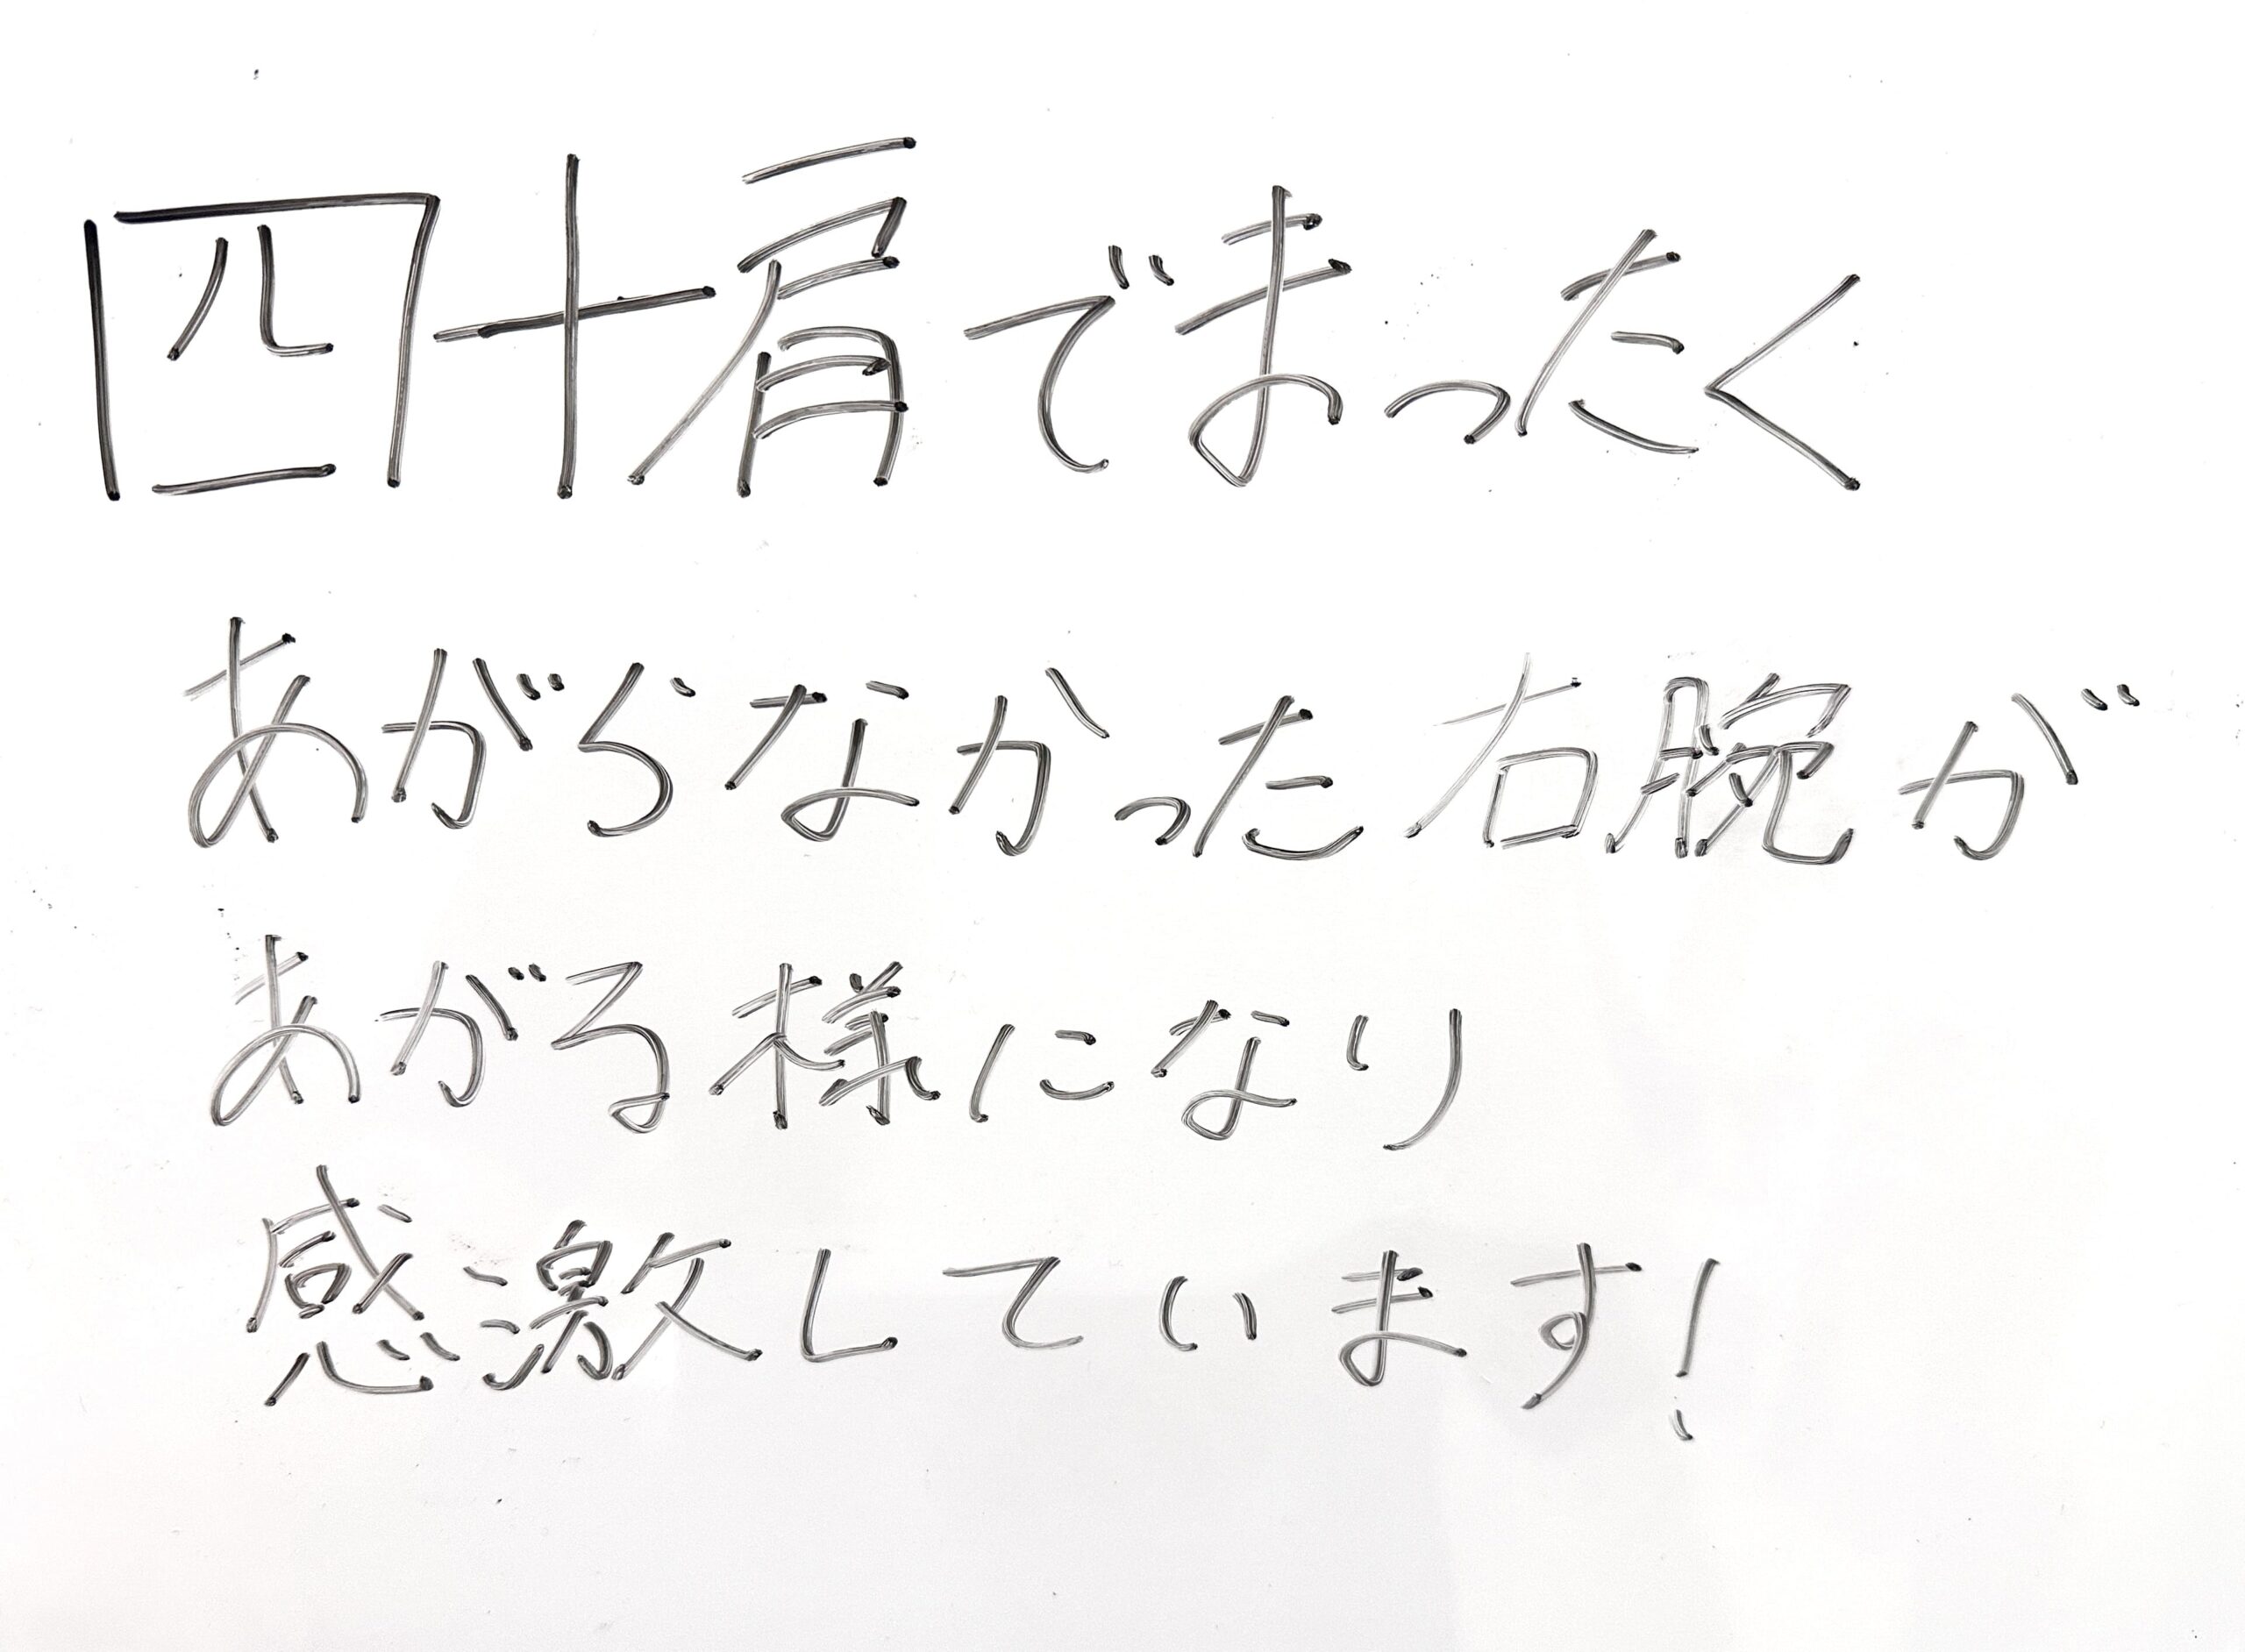 四十肩でまったく
あがらなかった右腕が
あがる様になり
感激しています!